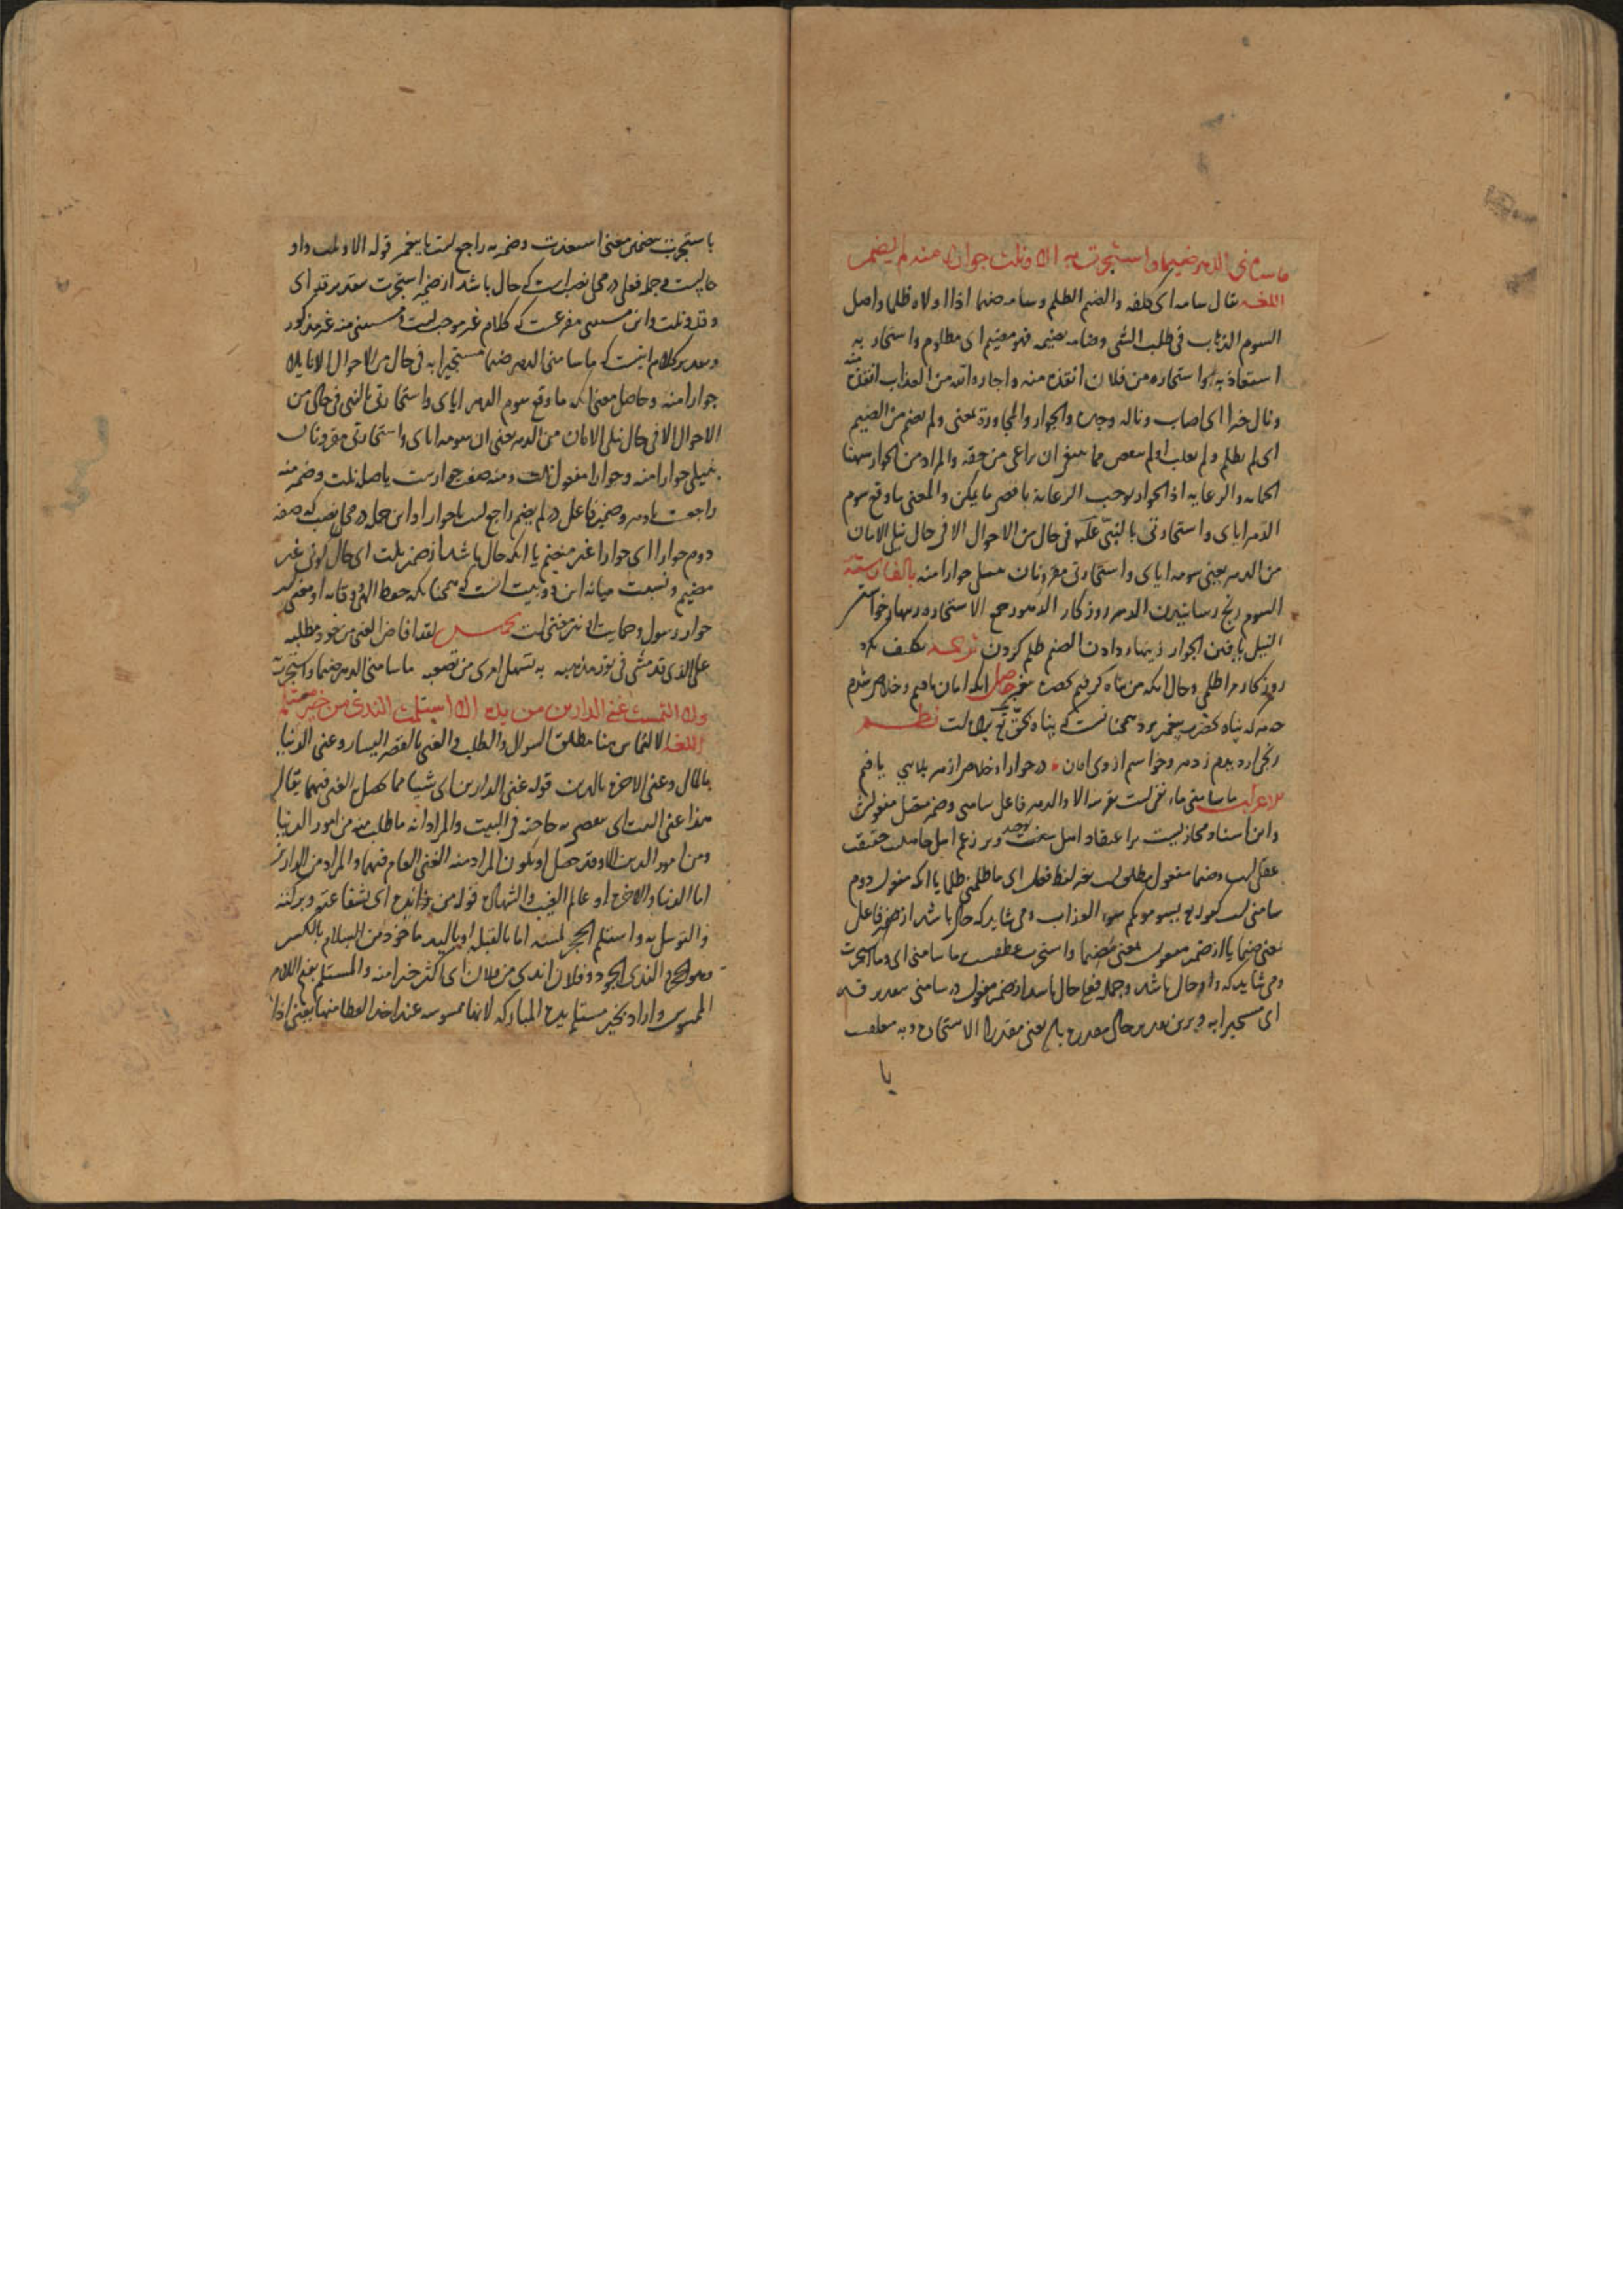 ما سامنی الدهر ضیما واستجرت به الا ونلت جوارا منه لم یضم
اللغه یقال سامه ای کلفه والضیم الظلم وسامه ضیما اذا اولاه ظلما واصل
السوم الذهاب فی طلب الشی وضامه یضیمه فهو مضیم ای مظلوم واستجار به
استعاذ به واستجاره من فلان انقذه منه واجاره الله من العذاب انقذه
ونال خیرا ای اصاب ونال وجد والجوار والمجاورة بمعنی ولم یضم من الضیم
ای لم یظلم ولم یغلب ولم ینقص مما ینبغی ان یراعی من حقه والمراد من الجوار ههنا
الحمایه والرعایه اذ الجوار یوجب الرعایة باقصی ما یمکن والمعنی ما وقع سوم
الدهر ایای واستجارتی بالنبی فی حال من الاحوال الا فی حال نیل الامان
من الدهر یعنی سومه ایای واستجارتی مقرونان بنیل جوار منه بالفارسیة
السوم رنج رسانیدن الدهر روزگار الاستجاره زینهار خواستن
النیل یافتن الجوار زینهار دادن الضیم ظلم کردن ترجمه تکلیف نکرد
روزگار مرا ظلمی وحال آنکه من پناه گرفتم بحضرت پیغمبر حاصل آنکه امان یافتم وخلاص شدم
که پناه بحضرت پیغمبر برد همچنانست که پناه بحق برده است نظم
رنجی ار دیدم ز دهر وخواستم از وی امان در جوار او خلاص از هر بلایی یافتم
الاعراب ما سامنی ما نفی است بقرینه الا والدهر فاعل سامنی وضمیر متصل مفعول
واین اسناد مجازیست بر اعتقاد اهل توحید وبر زعم اهل جاهلیت حقیقت
عقلی است وضیما مفعول مطلق است بغیر لفظ فعل ای ما ظلمنی ظلما یا آنکه مفعول دوم
سامنی است کقوله تع یسومونکم سوء العذاب ومی شاید که حال باشد از ضمیر فاعل
یعنی ضیما یا از ضمیر مفعول بمعنی مضیما واستجرت عطفست بر ما سامنی ای وما استجرت
ومی شاید که واو حال باشد وجمله فعلی حال باشد از ضمیر مفعول در سامنی بتقدیر قد
ای مستجیرا به وبرین تقدیر حال مقدره باشد یعنی مقدرا الاستجارة وبه متعلقست
با
باستجرت بتضمین معنی استعذت وضمیر به راجع است با پیغمبر قوله الا ونلت واو
حالیست وجمله فعلی در محل نصب است که حال باشد از ضمیر استجرت بتقدیر قد ای
وقد ونلت واین مستثنی مفرغست که کلام غیر موجب است ومستثنی منه غیر مذکور
وتقدیر کلام اینست که ما سامنی الدهر ضیما مستجیرا به فی حال من الاحوال الا نایلا
جوارا منه وحاصل معنی آنکه ما وقع سوم الدهر ایای واستجارتی بالنبی فی حال من
الاحوال الا فی حال نیلی الامان من الدهر یعنی ان سومه ایای واستجارتی مقرونان
بنیلی جوارا منه وجوارا مفعول نلت ومنه صفت جوارست یا صله نلت وضمیر منه
راجعست با وضمیر فاعل در لم یضم راجع است با جوارا واین جمله در محل نصب که صفة
دوم جوارا ای جوارا غیر مضیم یا آنکه حال باشد از ضمیر نلت ای حال کونی غیر
مضیم ونسبت میانه این دو بیت آنست که همچنانکه حفظ الهی ووقایه او مغنی است
جوار رسول وحمایت او نیز مغنی است تخمیس لقد افاض الغنی من جود مطلبه
علی الذی قد مشی فی نور مذهبه به تسهل امری من تصعبه ما سامنی الدهر ضیما واستجرت
ولا التمست غنی الدارین من یده الا استلمت الندی من خیر مستلم
اللغه الالتماس هنا مطلق السوال والطلب والغنی بالقصر الیسار وغنی الدنیا
بالمال وغنی الاخرة بالدین قوله غنی الدارین ای شیئا مما یحصل الغنی فیهما یقال
هذا غنی البیت ای یقضی به حاجته فی البیت والمراد انه ما طلب منه من امور الدنیا
ومن امور الدین الا وقد حصل او یکون المراد منه الغنی العام فیهما والمراد من الدارین
اما الدنیا والاخرة او عالم الغیب والشهادة قوله من یده ای بشفاعته وبرکته
والتوسل به واستلم الحجر لمسه اما بالقبلة او بالید ماخوذ من السلام بالکسر
وهو الحجر والندی الجود وفلان اندی من فلان ای اکثر خیرا منه والمستلم بفتح اللام
الملموس واراد بخیر مستلم یده المبارکه لانها ملموسه عند اخذ العطا منها یعنی اذا